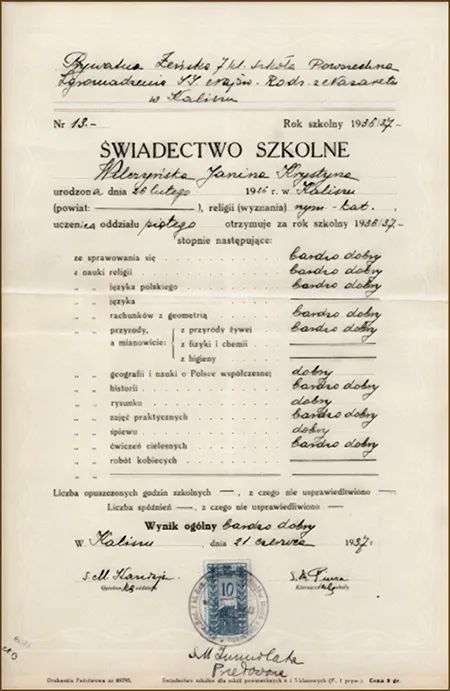 Prywatna Żeńska 7 kl. szkoła Powszechna
Zgromadzenia SS. Najśw. Rodz. z Nazaretu
w Kaliszu
Nr 13.- Rok szkolny 1936/37-
ŚWIADECTWO SZKOLNE
Wilczyńska Janina Krystyna
urodzona dnia 26 lutego 1926 r. w Kaliszu
(powiat: ), religii (wyznania) rzym-kat.,
uczenica oddziału piątego otrzymuje za rok szkolny 1936/37-
stopnie następujące:
ze sprawowania się bardzo dobry
z nauki religii bardzo dobry
„ „ języka polskiego bardzo dobry
„ „ języka
„ „ rachunków z geometrią bardzo dobry
„ „ przyrody, z przyrody żywej bardzo dobry
a mianowicie: z fizyki i chemii
z higieny
„ „ geografii i nauki o Polsce współczesnej dobry
„ „ historii bardzo dobry
„ „ rysunku dobry
„ „ zajęć praktycznych bardzo dobry
„ „ śpiewu dobry
„ „ ćwiczeń cielesnych bardzo dobry
„ „ robót kobiecych
„ „
Liczba opuszczonych godzin szkolnych —, z czego nie usprawiedliwiono —.
Liczba spóźnień —, z czego nie usprawiedliwiono —
Wynik ogólny bardzo dobry
W Kaliszu, dnia 21 czerwca 1937 r.
S. M.
10
S. M.
Drukarnia Państwowa nr Świadectwo szkolne dla szkół powszechnych Cena 8 gr.